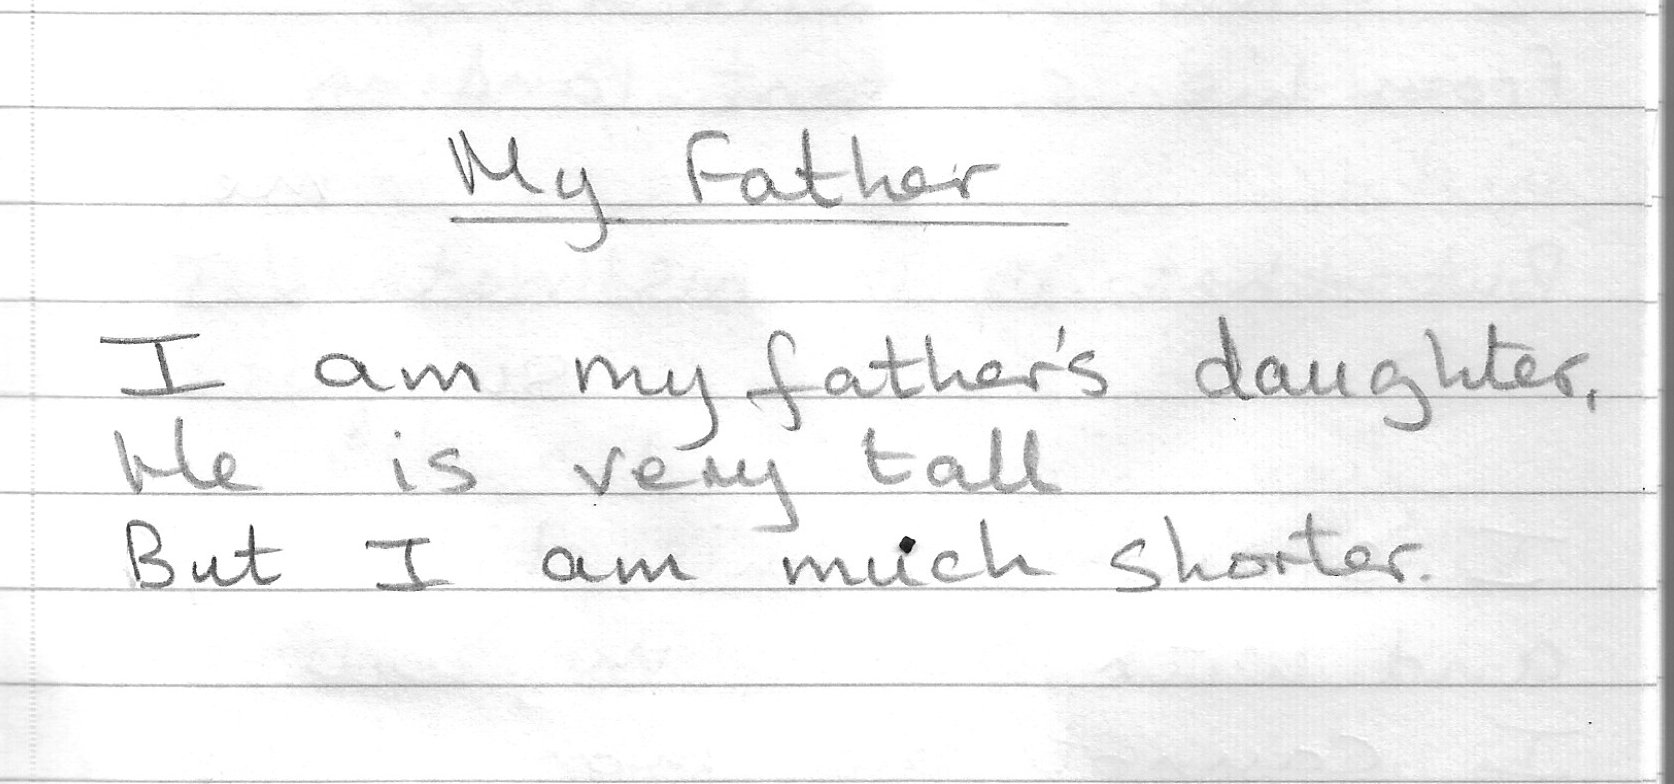 My Father
I am my father's daughter,
He is very tall
But I am much shorter.